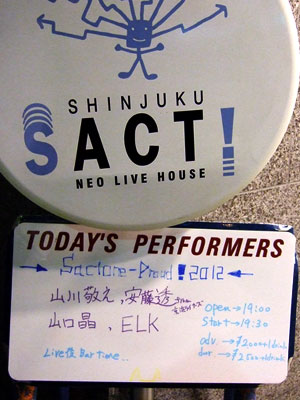 SHINJUKU
SACT!
NEO LIVE HOUSE
TODAY'S PERFORMERS
→ Sactore-Proud! 2012 ←
山川敬之, 安藤透 from
山口晶, ELK
open→19:00
start→19:30
adv. →¥2000+1drink
door →¥2500+1drink
Live後 Bar time..